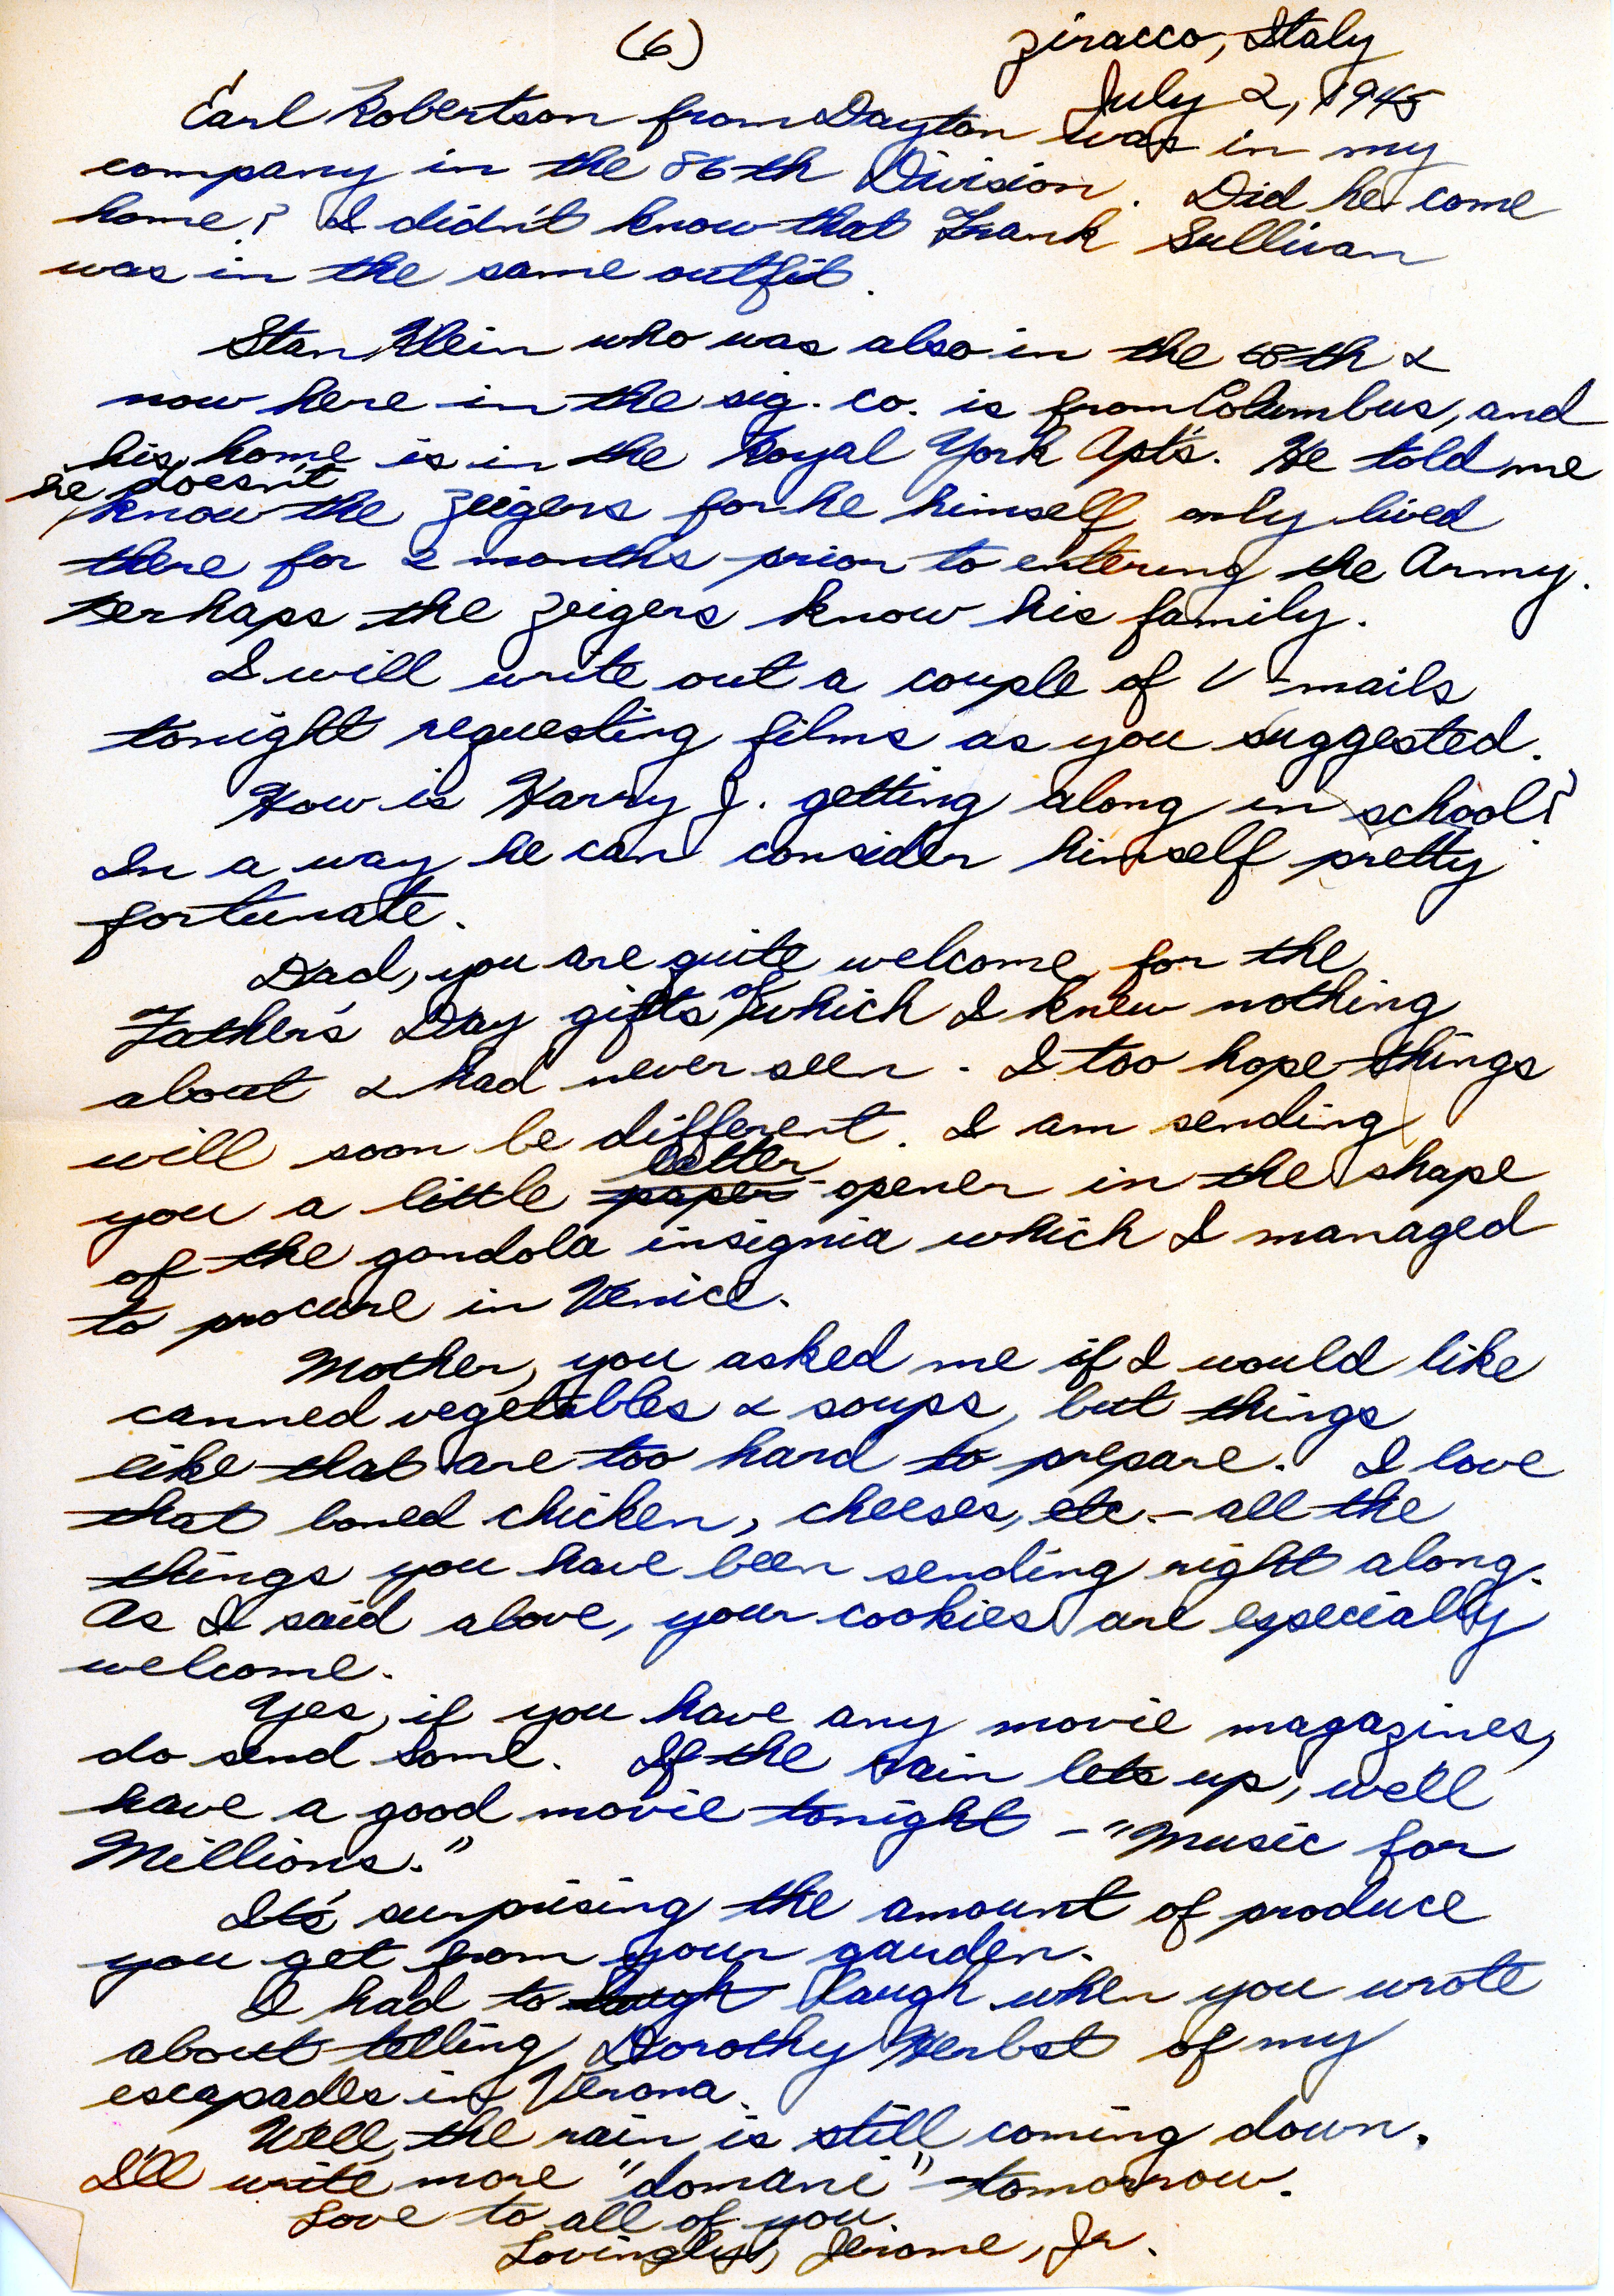 (6)
Ziracco, Italy
July 2, 1945
Earl Robertson from Dayton was in my
company in the 86th Division. Did he come
home? I didn't know that Frank Sullivan
was in the same outfit.
Stan Klein who was also in the 68th &
now here in the sig. co. is from Columbus, and
his home is in the Royal York Apt's. He told me
he doesn't
know the Zeigers for he himself only lived
there for 2 months prior to entering the Army.
Perhaps the Zeigers know his family.
I will write out a couple of V-mails
tonight requesting films as you suggested.
How is Harry J. getting along in school?
In a way he can consider himself pretty
fortunate.
Dad, you are quite welcome for the
Father's Day gifts of which I knew nothing
about & had never seen. I too hope things
will soon be different. I am sending
you a little paper letter opener in the shape
of the gondola insignia which I managed
to procure in Venice.
Mother, you asked me if I would like
canned vegetables & soups, but things
like that are too hard to prepare. I love
that boned chicken, cheeses, etc. - all the
things you have been sending right along.
As I said above, your cookies are especially
welcome.
Yes, if you have any movie magazines,
do send some. If the rain lets up, we'll
have a good movie tonight - "Music for
Millions."
It's surprising the amount of produce
you get from your garden.
I had to laugh laugh when you wrote
about telling Dorothy Herbst of my
escapades in Verona.
Well, the rain is still coming down.
I'll write more "domani" - tomorrow.
Love to all of you.
Lovingly, Jerome, Jr.